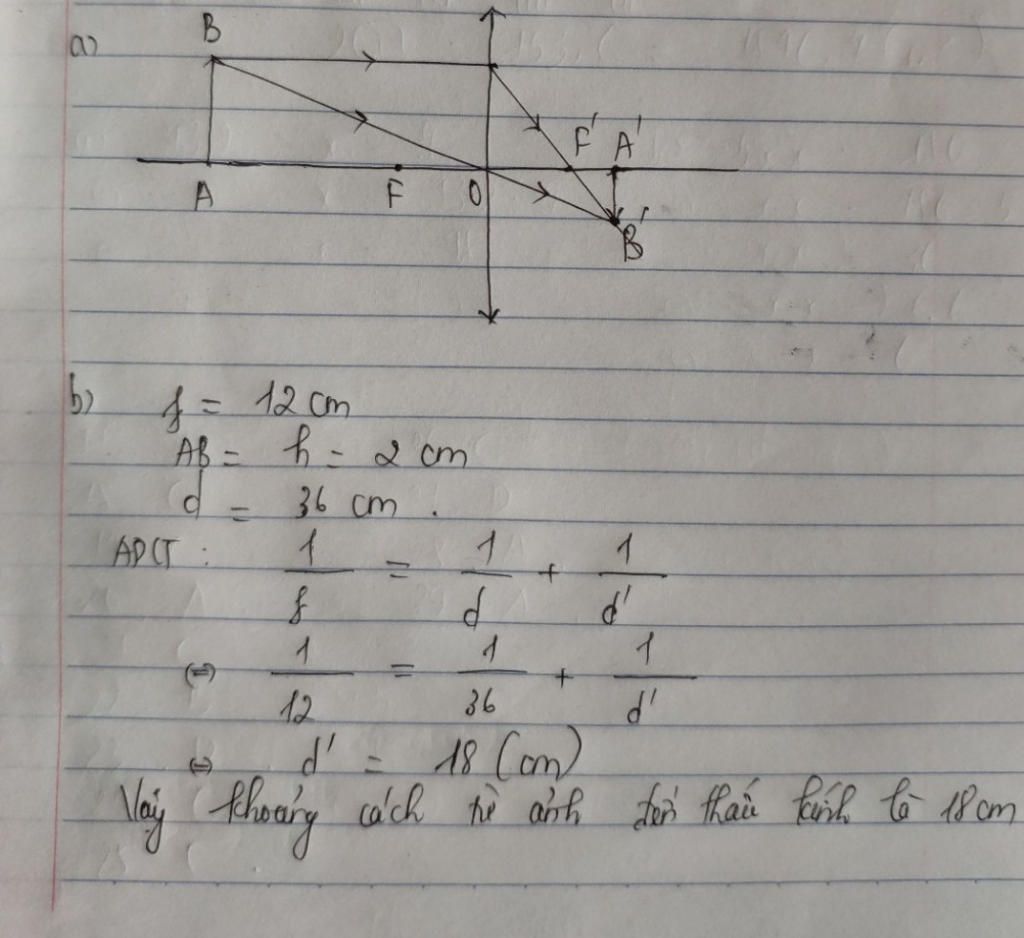 a)
B
F' A'
A F O
B'
b) f = 12 cm
AB = h = 2 cm
d = 36 cm .
ADCT : 1/f = 1/d + 1/d'
(=) 1/12 = 1/36 + 1/d'
(=) d' = 18 (cm)
Vậy khoảng cách từ ảnh đến thấu kính là 18 cm